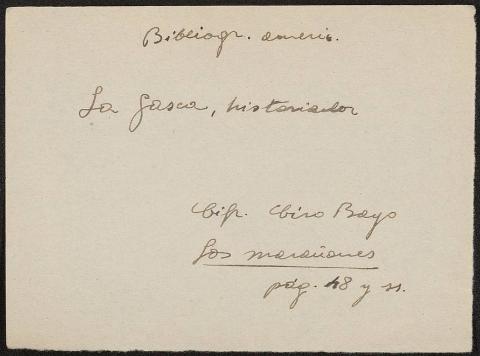 Bibliogr. americ.
La Gasca, historiador
Cif. Ciro Bayo
Los marañones
pág. 48 y ss.